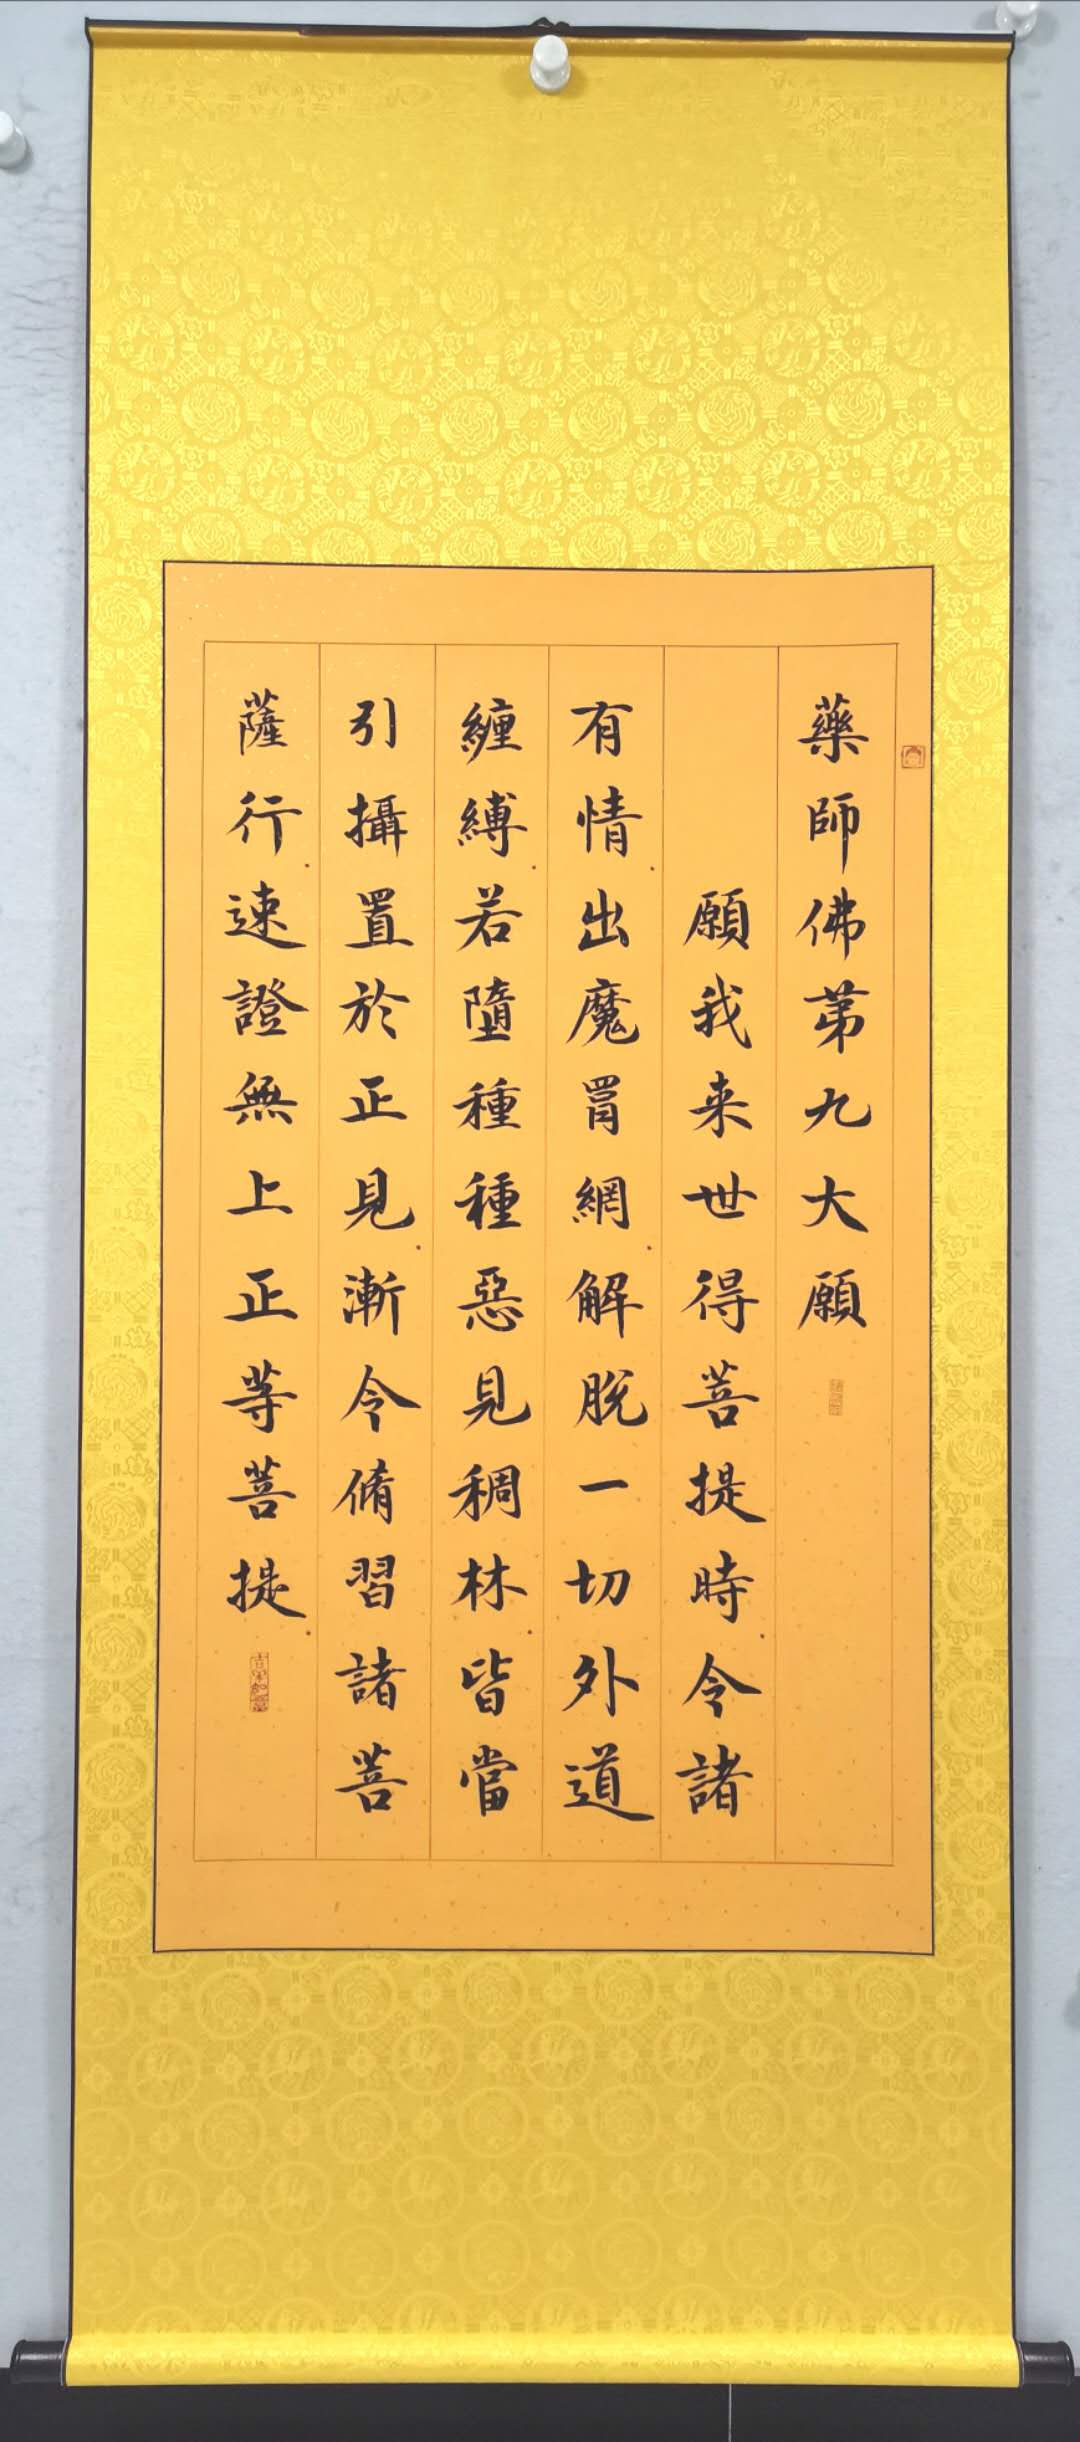 藥師佛苐九大願
願我来世得菩提時令諸
有情出魔罥網解脫一切外道
纏縛若墮種種惡見稠林皆當
引攝置於正見漸令脩習諸菩
薩行速證無上正等菩提
吉祥如意